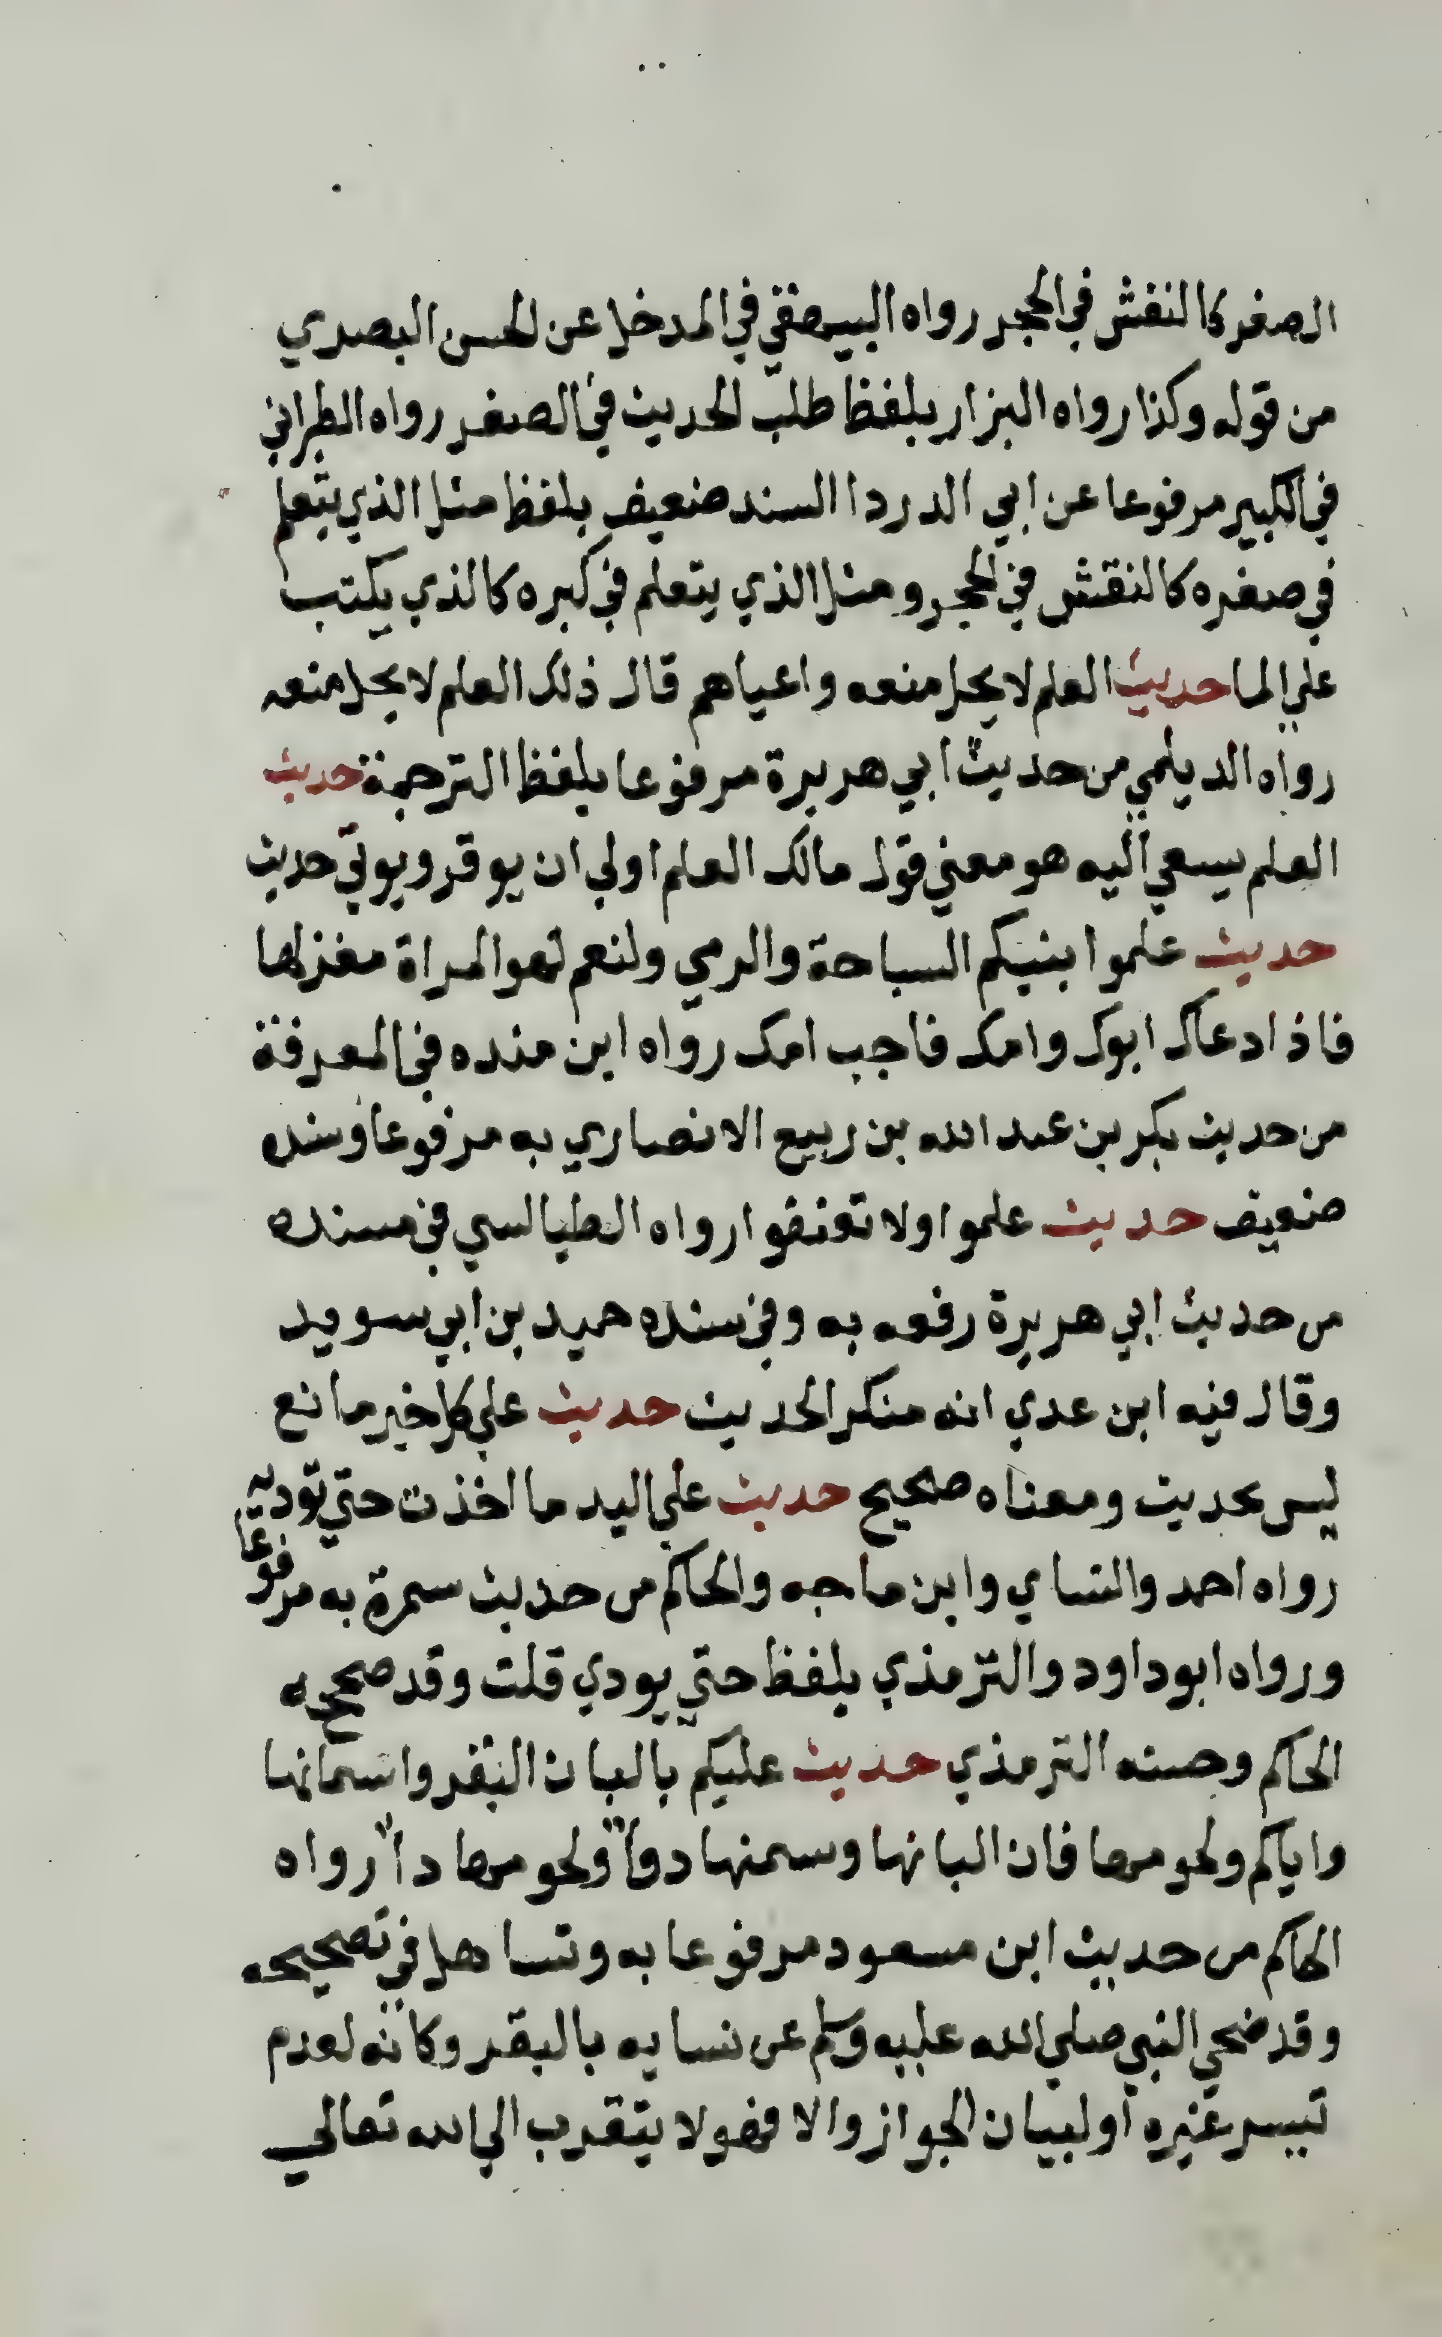 الصغر كالنقش في الحجر رواه البيهقي في المدخل عن الحسن البصري
من قوله وكذا رواه البزار بلفظ طلب الحديث في الصغر رواه الطبراني
في الكبير مرفوعا عن ابي الدردا السند ضعيف بلفظ مثل الذي يتعلم
في صغره كالنقش في الحجر ومثل الذي يتعلم في كبره كالذي يكتب
علي الما حديث العلم لا يحل منعه واعياهم قال ذلك العلم لا يحل منعه
رواه الديلمي من حديث ابي هريرة مرفوعا بلفظ الترجمة حديث
العلم يسعي اليه هو معني قول مالك العلم اولي ان يوقر ويوتي حديث
حديث علموا بنيكم السباحة والرمي ولنعم لهو المراة مغزلها
فاذا دعاك ابوك وامك فاجب امك رواه ابن منده في المعرفة
من حديث بكر بن عبد الله بن ربيع الانصاري به مرفوعا وسنده
ضعيف حديث علموا ولا تعنفوا رواه الطيالسي في مسنده
من حديث ابي هريرة رفعه به وفي سنده حميد بن ابي سويد
وقال فيه ابن عدي انه منكر الحديث حديث علي كل خير مانع
ليس بحديث ومعناه صحيح حديث علي اليد ما اخذت حتي توديه
رواه احمد والنساي وابن ماجه والحاكم من حديث سمرة به مرفوعا
ورواه ابو داود والترمذي بلفظ حتي يودي قلت وقد صححه
الحاكم وحسنه الترمذي حديث عليكم بالبان البقر واسمانها
واياكم ولحومها فان البانها وسمنها دوآ ولحومها دآ رواه
الحاكم من حديث ابن مسعود مرفوعا به وتساهل في تصحيحه
وقد ضحي النبي صلي الله عليه وسلم عن نسايه بالبقر وكانه لعدم
تيسر غيره او لبيان الجواز والا فهو لا يتقرب الي الله تعالي